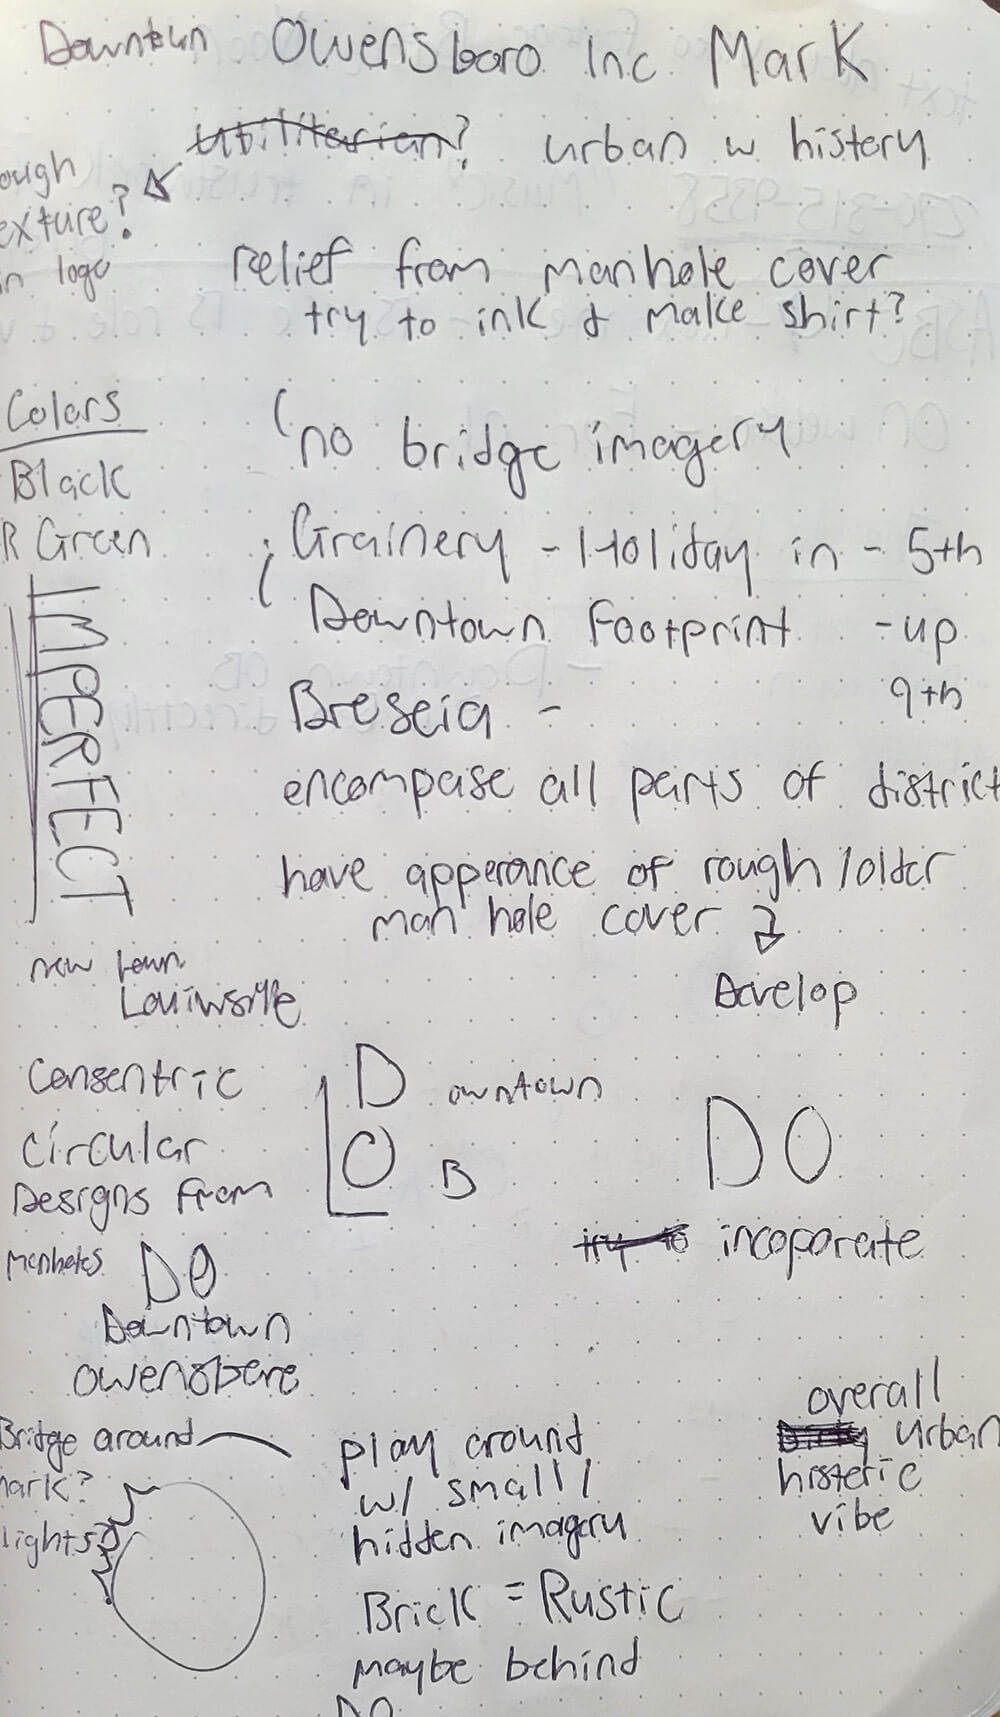 Downtown Owensboro Inc Mark
Utilitarian? urban w history
ough
exture?
in logo
relief from manhole cover
try to ink & make shirt?
Colors
Black
R Green
IMPERFECT
(no bridge imagery
Grainery - Holiday in - 5th
Downtown Footprint - up
9th
Breseia -
encompase all parts of district
have apperance of rough/older
man hole cover
Develop
new town
Louiwsville
Consentric
circular
Designs from
manholes
DO
Downtown
owensboro
D owntown
O B
DO
try to incoporate
Bridge around
mark?
lights?
play around
w/ small/
hidden imagery
Brick = Rustic
maybe behind
DO
overall
urban
histeric
vibe